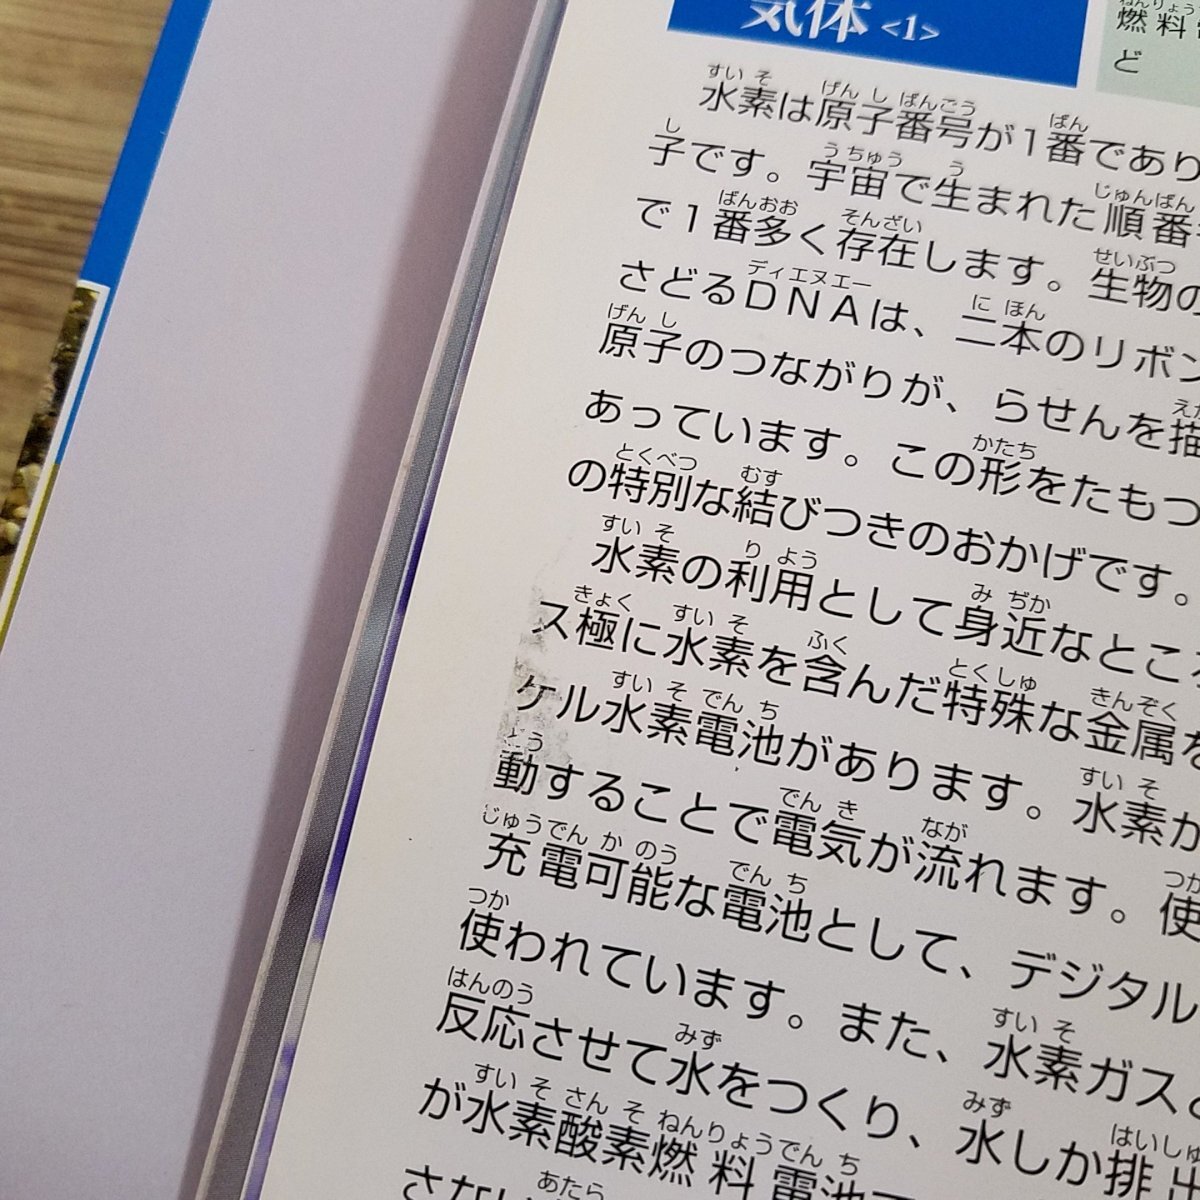 気体 <1>
燃料
ど
水素は原子番号が1番であり
子です。宇宙で生まれた順番
で1番多く存在します。生物の
さどるDNAは、二本のリボン
原子のつながりが、らせんを描
あっています。この形をたもつ
の特別な結びつきのおかげです。
水素の利用として身近なところ
ス極に水素を含んだ特殊な金属を
ケル水素電池があります。水素が
動することで電気が流れます。使
充電可能な電池として、デジタル
使われています。また、水素ガスと
反応させて水をつくり、水しか排出
が水素酸素燃料電池
さない